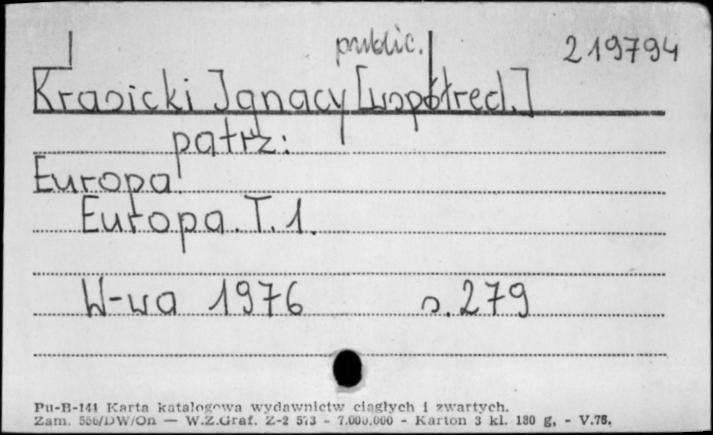 public. 219794
Krasicki Ignacy [współred.]
patrz:
Europa
Europa. T. 1.
W-wa 1976 s. 279
Pu-B-141 Karta katalogowa wydawnictw ciągłych i zwartych.
Zam. 556/DW/On — W.Z.Graf. Z-2 573 - 7.000.000 - Karton 3 kl. 180 g. - V.76.